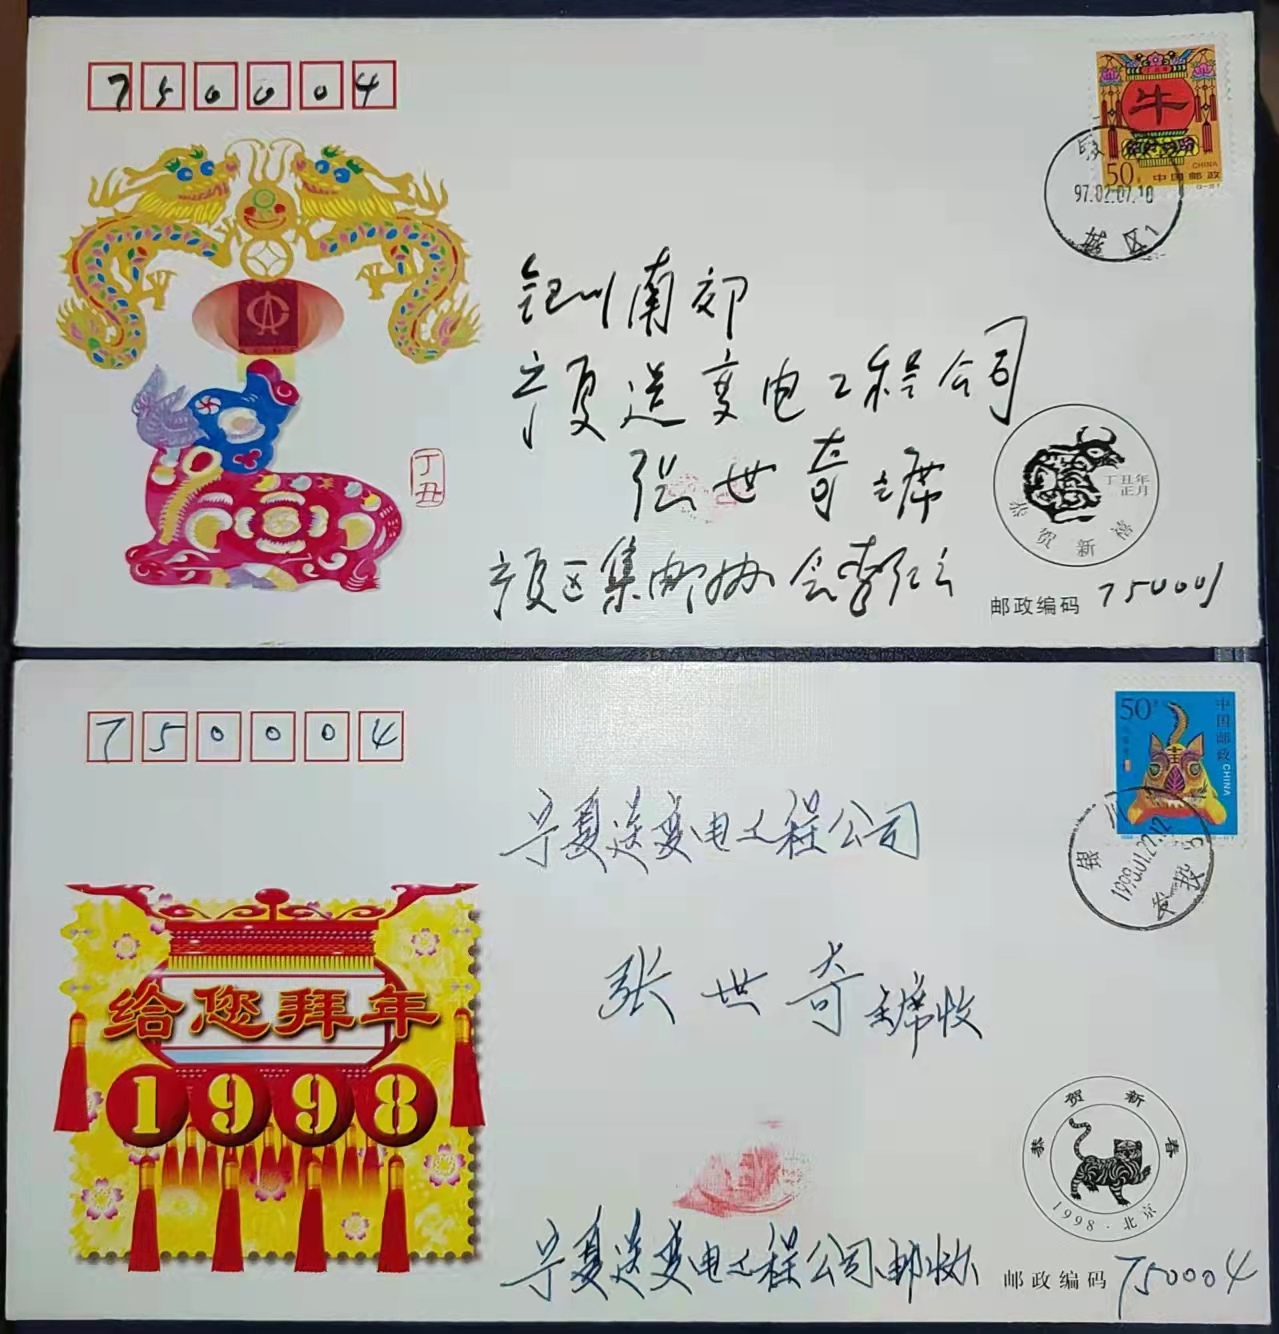 750004
牛
50分
CHINA
中国邮政
97.02.07.10
城区1
银川南郊
宁夏送变电工程公司
张世奇主席
丁丑
丁丑年
正月
恭贺新禧
宁夏区集邮协会李红云
邮政编码 750001
750004
50分
中国邮政
CHINA
银川
1998.01.27.12
发投
宁夏送变电工程公司
张世奇主席收
给您拜年
1998
恭贺新春
1998·北京
宁夏送变电工程公司邮协
邮政编码 750004